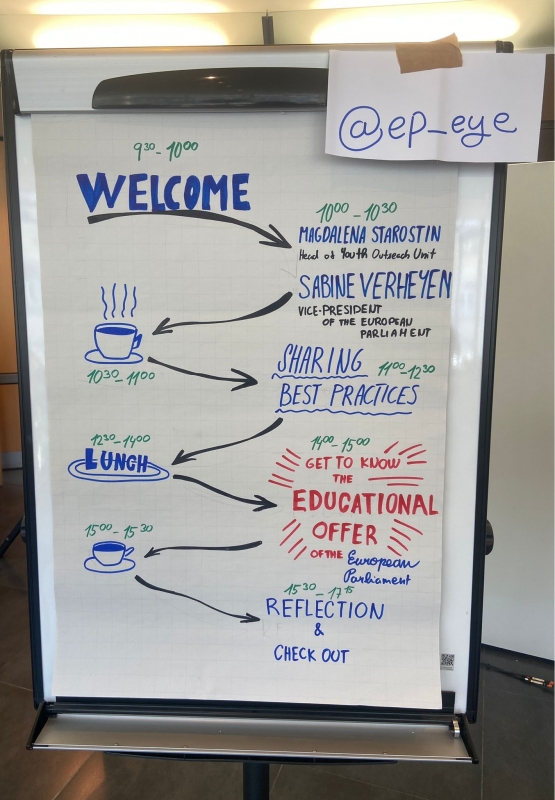 @ep_eye
9³⁰-10⁰⁰
WELCOME
10⁰⁰-10³⁰
MAGDALENA STAROSTIN
Head of Youth Outreach Unit
SABINE VERHEYEN
VICE-PRESIDENT
OF THE EUROPEAN
PARLIAMENT
10³⁰-11⁰⁰
SHARING
11⁰⁰-12³⁰
BEST PRACTICES
12³⁰-14⁰⁰
LUNCH
14⁰⁰-15⁰⁰
GET TO KNOW
THE
EDUCATIONAL
OFFER
OF THE European
Parliament
15⁰⁰-15³⁰
15³⁰-17¹⁵
REFLECTION
&
CHECK OUT